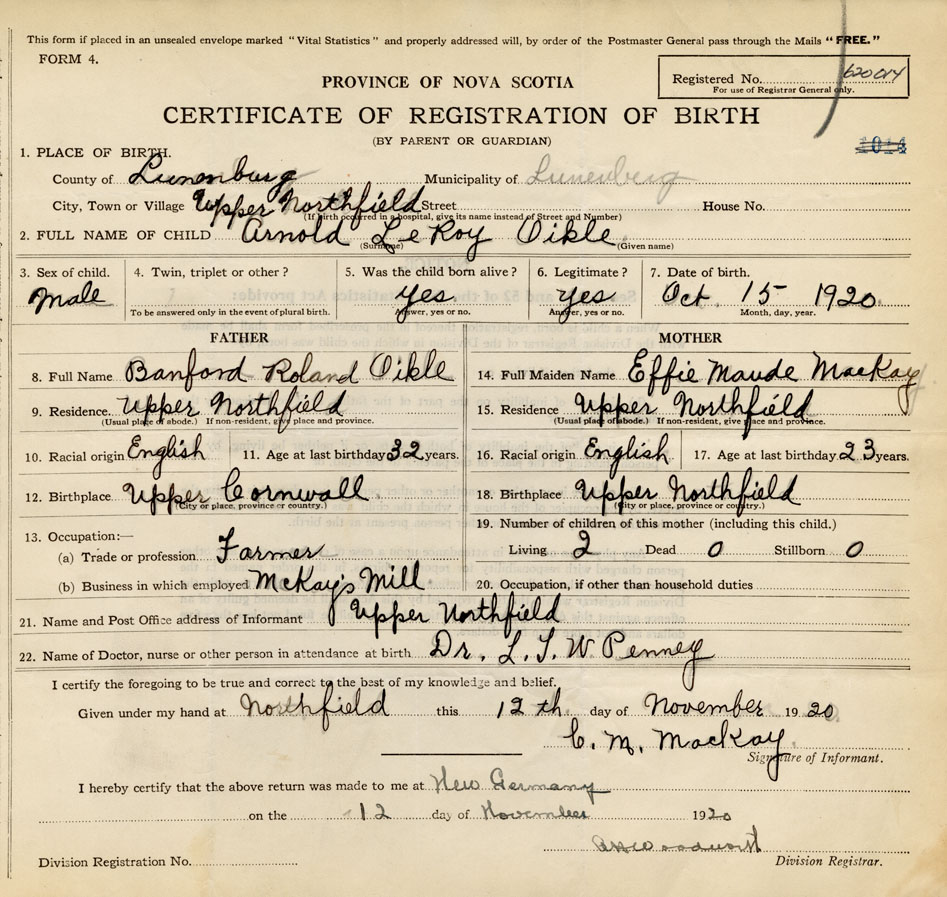 This form if placed in an unsealed envelope marked "Vital Statistics" and properly addressed will, by order of the Postmaster General pass through the Mails "FREE."
FORM 4.
Registered No. 620014
For use of Registrar General only.
PROVINCE OF NOVA SCOTIA
CERTIFICATE OF REGISTRATION OF BIRTH
(BY PARENT OR GUARDIAN)
1014
1. PLACE OF BIRTH.
County of Lunenburg Municipality of Lunenberg
City, Town or Village Upper Northfield Street House No.
(If birth occurred in a hospital, give its name instead of Street and Number)
2. FULL NAME OF CHILD Arnold LeRoy Oikle
(Surname) (Given name)
3. Sex of child. 4. Twin, triplet or other? 5. Was the child born alive? 6. Legitimate? 7. Date of birth.
Male Yes Yes Oct. 15 1920
To be answered only in the event of plural birth. Answer, yes or no. Answer, yes or no. Month, day, year.
FATHER MOTHER
8. Full Name Banford Roland Oikle 14. Full Maiden Name Effie Maude MacKay
9. Residence. Upper Northfield 15. Residence Upper Northfield
(Usual place of abode.) If non-resident, give place and province. (Usual place of abode.) If non-resident, give place and province.
10. Racial origin English 11. Age at last birthday 32 years. 16. Racial origin English 17. Age at last birthday 23 years.
12. Birthplace Upper Cornwall 18. Birthplace Upper Northfield
(City or place, province or country.) (City or place, province or country.)
13. Occupation:— 19. Number of children of this mother (including this child.)
(a) Trade or profession Farmer Living 2 Dead 0 Stillborn 0
(b) Business in which employed McKay's Mill 20. Occupation, if other than household duties
21. Name and Post Office address of Informant Upper Northfield
22. Name of Doctor, nurse or other person in attendance at birth Dr. L. S. W Penney
I certify the foregoing to be true and correct to the best of my knowledge and belief.
Given under my hand at Northfield this 12th day of November 1920
C. M. MacKay
Signature of Informant.
I hereby certify that the above return was made to me at New Germany
on the 12 day of November 1920
Division Registration No. Division Registrar.